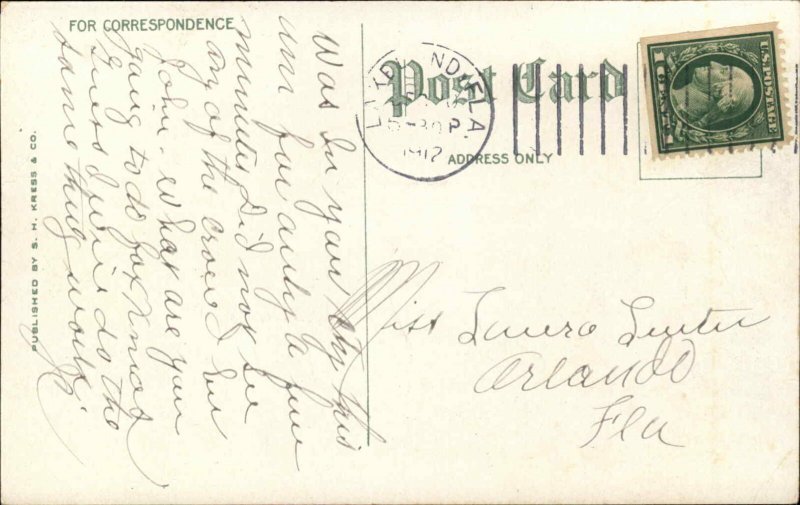 FOR CORRESPONDENCE
Post Card
ADDRESS ONLY
U.S. POSTAGE
1 CENT 1
LAKELAND, FLA.
30 P
1912
Was in your city this
am for only a few
minutes did not see
any of the crowd but
John. What are you
going to do for Xmas
guess I will do the
same thing work.
Miss
Orlando
Fla
PUBLISHED BY S. H. KRESS & CO.